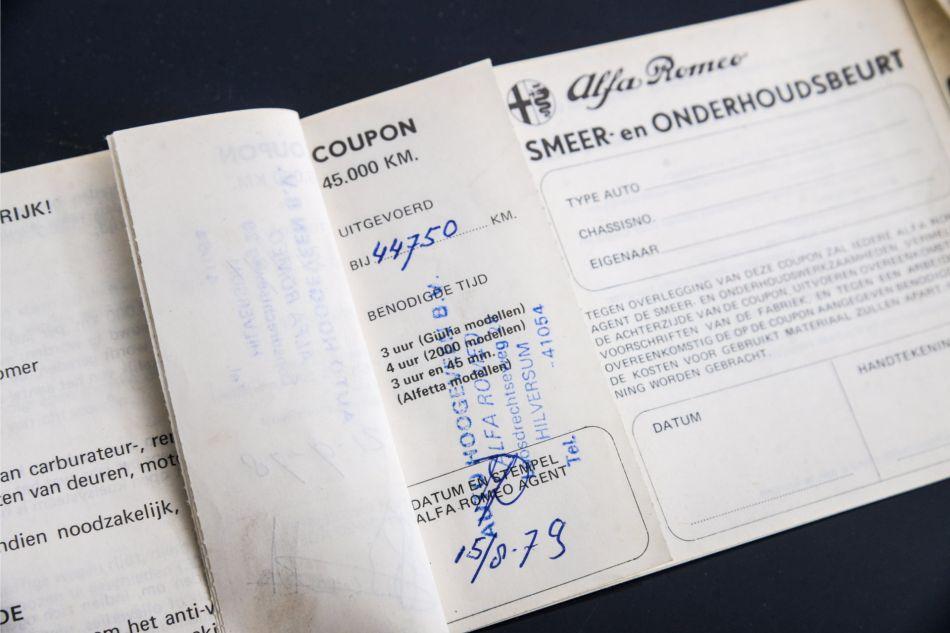 RIJK!
omer
an carburateur-,
ten van deuren,
ndien noodzakelijk,
DE
om het anti-v
COUPON
45.000 KM.
UITGEVOERD
BIJ 44750 KM.
BENODIGDE TIJD
3 uur (Giulia modellen)
4 uur (2000 modellen)
3 uur en 45 min.
(Alfetta modellen)
AUTO HOOGEVEEN B.V.
ALFA ROMEO
HILVERSUM
Tel. - 41054
DATUM EN STEMPEL
ALFA ROMEO AGENT
15/8-79
Alfa Romeo
SMEER- en ONDERHOUDSBEURT
TYPE AUTO
CHASSISNO.
EIGENAAR
TEGEN OVERLEGGING VAN DEZE COUPON ZAL IEDERE ALFA
AGENT DE SMEER- EN ONDERHOUDSWERKZAAMHEDEN
DE ACHTERZIJDE VAN DE COUPON, UITVOEREN
VOORSCHRIFTEN VAN DE FABRIEK, EN TEGEN EEN
OVEREENKOMSTIG DE OP DE COUPON AANGEGEVEN
DE KOSTEN VOOR GEBRUIKT MATERIAAL ZULLEN
NING WORDEN GEBRACHT.
DATUM
HANDTEKENIN